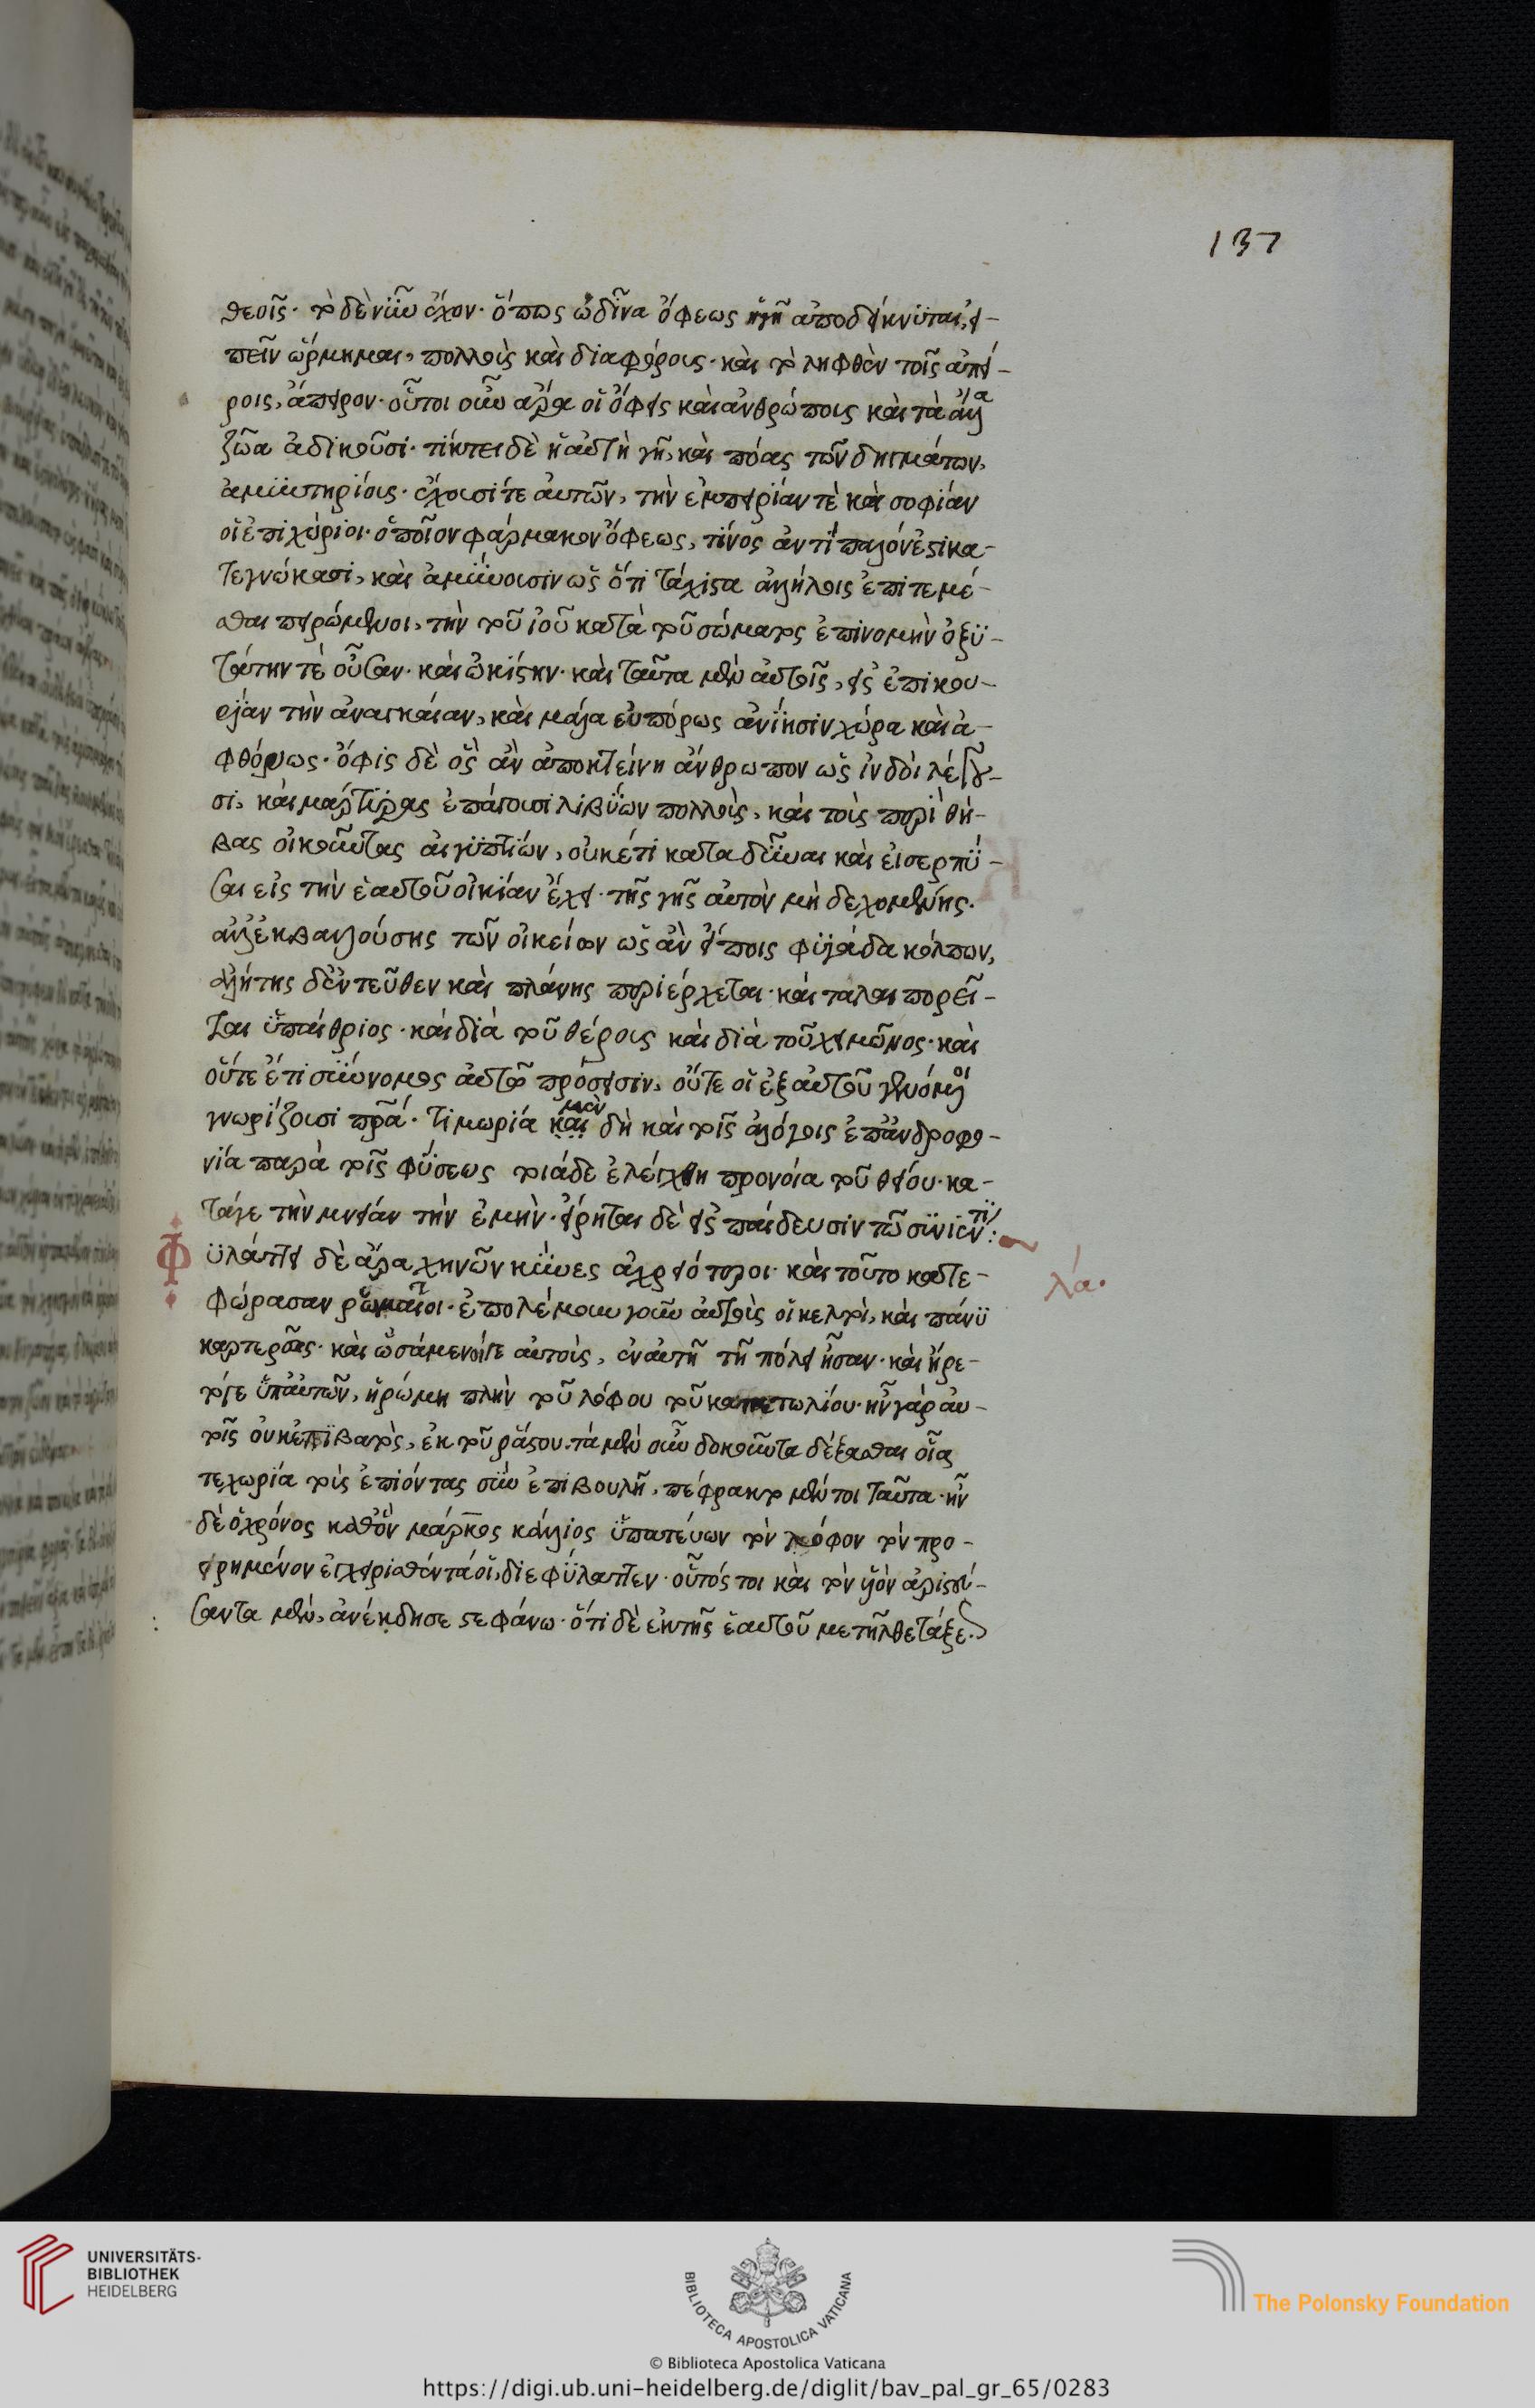 137
θεοῖς· τὸ δὲ νῦν ἔχον· ὅπως ὠδῖνα ὄφεως ἡ γῆ ἀποδείκνυται, εἰ-
πεῖν ὥρμημαι, πολλοὺς καὶ διαφόρους· καὶ τὸ ληφθὲν τοῖς ἀπεί-
ροις, ἄπειρον· οὗτοι οὖν ἄρα οἱ ὄφεις καὶ ἀνθρώποις καὶ τὰ ἄλλα
ζῶα ἀδικοῦσι· τίκτει δὲ ἡ αὐτὴ γῆ, καὶ πόας τῶν δηγμάτων,
ἀμυντηρίους· ἔχουσί τε αὐτῶν, τὴν ἐμπειρίαν τὲ καὶ σοφίαν
οἱ ἐπιχώριοι· ὁποῖον φάρμακον ὄφεως, τίνος ἀντίπαλόν ἐστι κα-
τεγνώκασι, καὶ ἀμύνουσιν ὡς ὅτι τάχιστα ἀλλήλοις ἐπιτεμέ-
σθαι πειρώμενοι, τὴν τοῦ ἰοῦ κατὰ τοῦ σώματος ἐπινομὴν ὀξυ-
τάτην τὲ οὖσαν· καὶ ὠκίστην· καὶ ταῦτα μὲν αὐτοῖς, εἰς ἐπικου-
ρίαν τὴν ἀναγκαίαν, καὶ μάλα εὐπόρως ἀνίησιν χώρα καὶ ἀ-
φθόνως· ὄφις δὲ ὃς ἂν ἀποκτείνη ἄνθρωπον ὡς ἰνδοὶ λέγου-
σι, καὶ μάρτυρας ἐπάγουσι λιβύων πολλοὺς, καὶ τοὺς περὶ θή-
βας οἰκοῦντας αἰγυπτίων, οὐκέτι καταδῦναι καὶ εἰσερπύ-
σαι εἰς τὴν ἑαυτοῦ οἰκίαν ἔχει· τῆς γῆς αὐτὸν μὴ δεχομένης·
ἀλλ' ἐκβαλλούσης τῶν οἰκείων ὡς ἂν εἴποις φυγάδα κόλπων,
ἀλήτης δ' ἐντεῦθεν καὶ πλάνης περιέρχεται· καὶ ταλαιπορεῖ-
ται ὑπαίθριος· καὶ διὰ τοῦ θέρους καὶ διὰ τοῦ χειμῶνος· καὶ
οὔτε ἔτι σύννομος αὐτῷ πρόσεισιν, οὔτε οἱ ἐξ αὐτοῦ γενόμενοι
γνωρίζουσι πατέρα· τιμωρία καὶ μὲν δὴ καὶ τοῖς ἀλόγοις ἐπ' ἀνδροφο-
νία παρὰ τῆς φύσεως τοιάδε ἐλέγχθη προνοία τοῦ θείου· κα-
τάγε τὴν μνείαν τὴν ἐμὴν· εἴρηται δὲ εἰς παίδευσιν τῶ συνιέντι:
Φυλάττει δὲ ἄρα χηνῶν κύνες ἀχρειότεροι· καὶ τοῦτο κατε-
λα·
φώρασαν ῥωμαῖοι· ἐπολέμουν γοῦν αὐτοὺς οἱ κελτοὶ, καὶ πάνυ
καρτερῶς· καὶ ὠσάμενοί γε αὐτοὺς, ἐν αὐτῆ τῆ πόλει ἦσαν· καὶ ἥρη-
τό γε ὑπ' αὐτῶν, ἡ ῥώμη πλὴν τοῦ λόφου τοῦ καπετωλίου· ἦν γὰρ αὐ-
τοῖς οὐκ ἐπίβατος, ἐκ τοῦ ῥάστου· τὰ μὲν οὖν δοκοῦντα δέξασθαι οἷα
τε χωρία τοὺς ἐπιόντας σὺν ἐπιβουλῆ, πέφρακτο μέντοι ταῦτα· ἦν
δὲ ὁ χρόνος καθ' ὃν μάρκος μάλλιος ὑπατεύων τὸν λόφον τὸν προ-
ειρημένον ἐγχειρισθέντα οἱ, διεφύλαττεν· οὗτός τοι καὶ τὸν υἱὸν ἀριστεύ-
σαντα μὲν, ἀνέκδησε στεφάνω· ὅτι δὲ ἐκ τῆς ἑαυτοῦ μετῆλθε τάξε
UNIVERSITÄTS-
BIBLIOTHEK
HEIDELBERG
BIBLIOTECA APOSTOLICA VATICANA
The Polonsky Foundation
© Biblioteca Apostolica Vaticana
https://digi.ub.uni-heidelberg.de/diglit/bav_pal_gr_65/0283